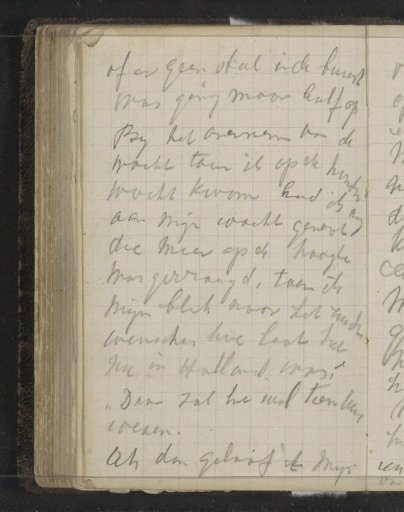 of er geen stal in de buurt
was ging maar half op
By het overnemen van de
wacht toen ik op de
wacht kwam had ik
aan mijn wacht
die meer op de hoogte
was gevraagd, toen ik
mijn blik naar het
wenschen hoe laat het
nu in Holland was!
"Daar zal het wel
wezen.
Als dan geloof ik mijn